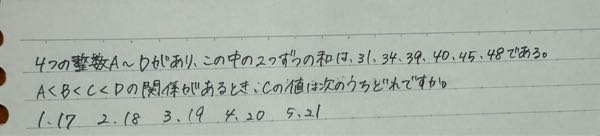 4つの整数A～Dがあり、この中の2つずつの和は、31、34、39、40、45、48である。
A<B<C<Dの関係があるとき、Cの値は次のうちどれですか。
1.17 2.18 3.19 4.20 5.21